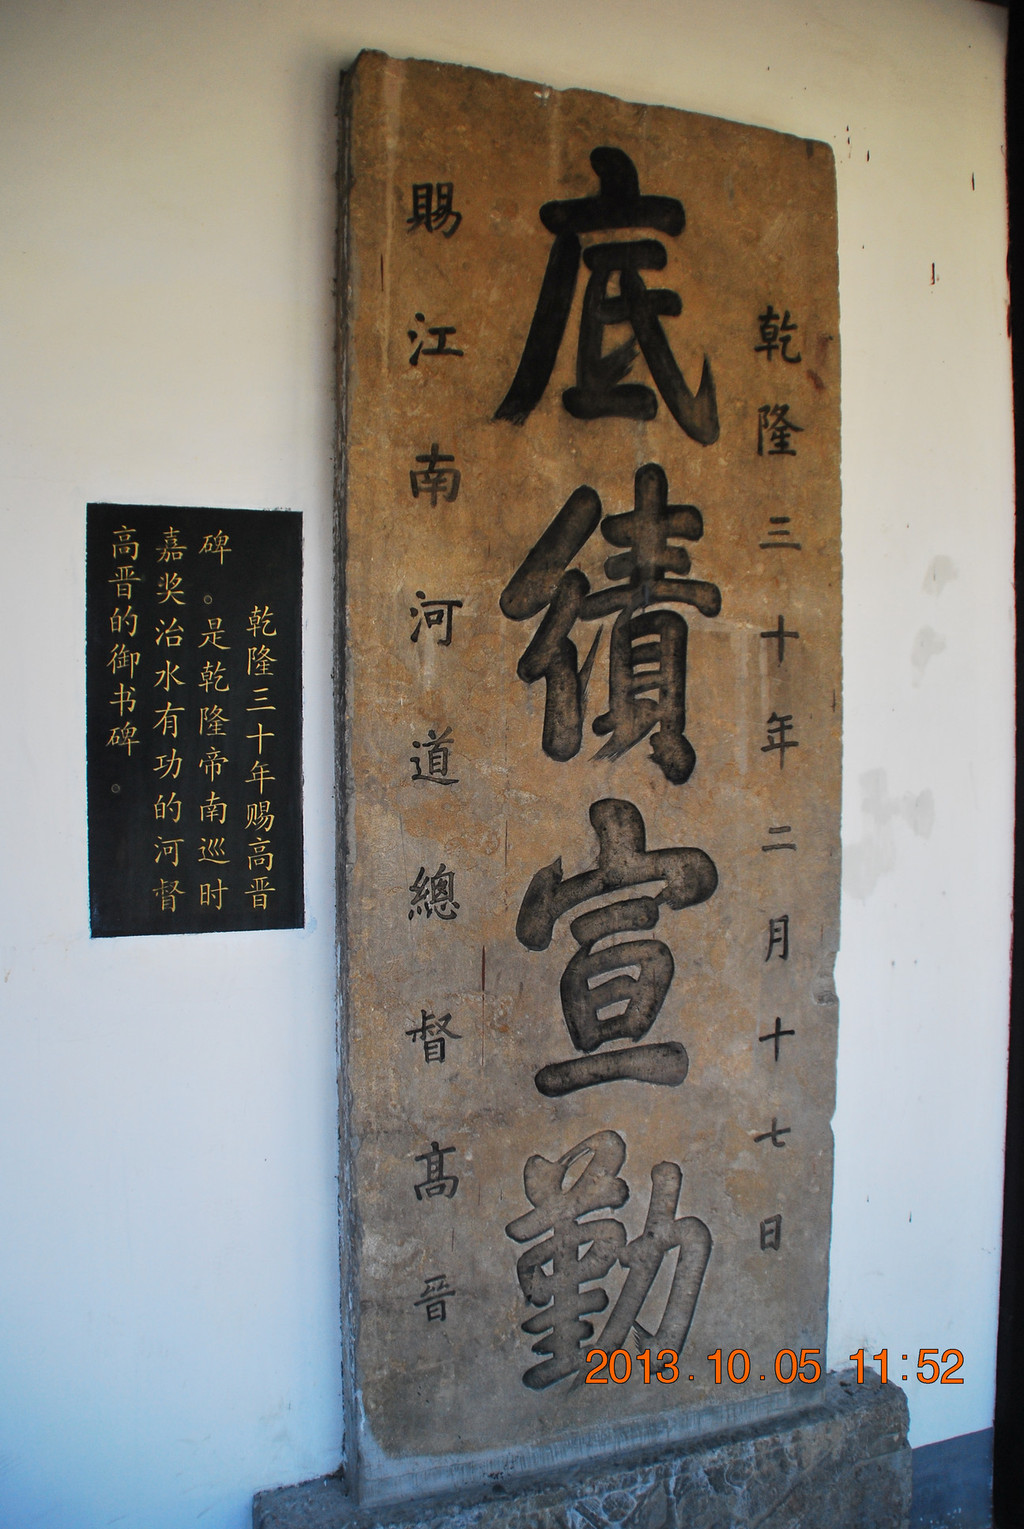 乾隆三十年二月十七日
底績宣勤
賜江南河道總督髙晉
乾隆三十年赐高晋
碑。是乾隆帝南巡时
嘉奖治水有功的河督
高晋的御书碑。
2013.10.05 11:52